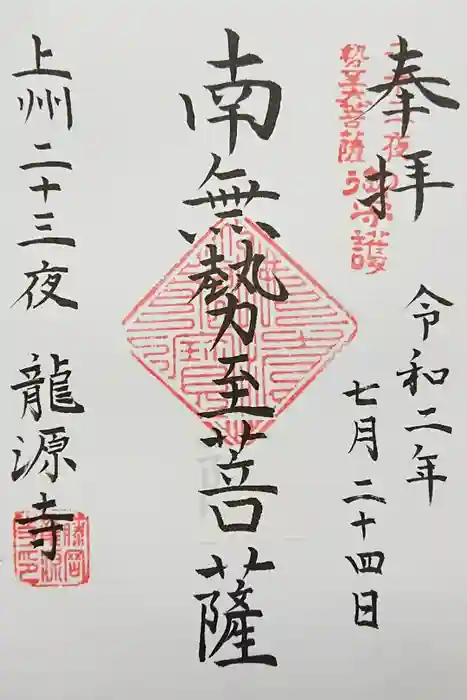 奉拝
令和二年
七月二十四日
南無勢至菩薩
上州二十三夜 龍源寺
勢至大菩薩
御守護